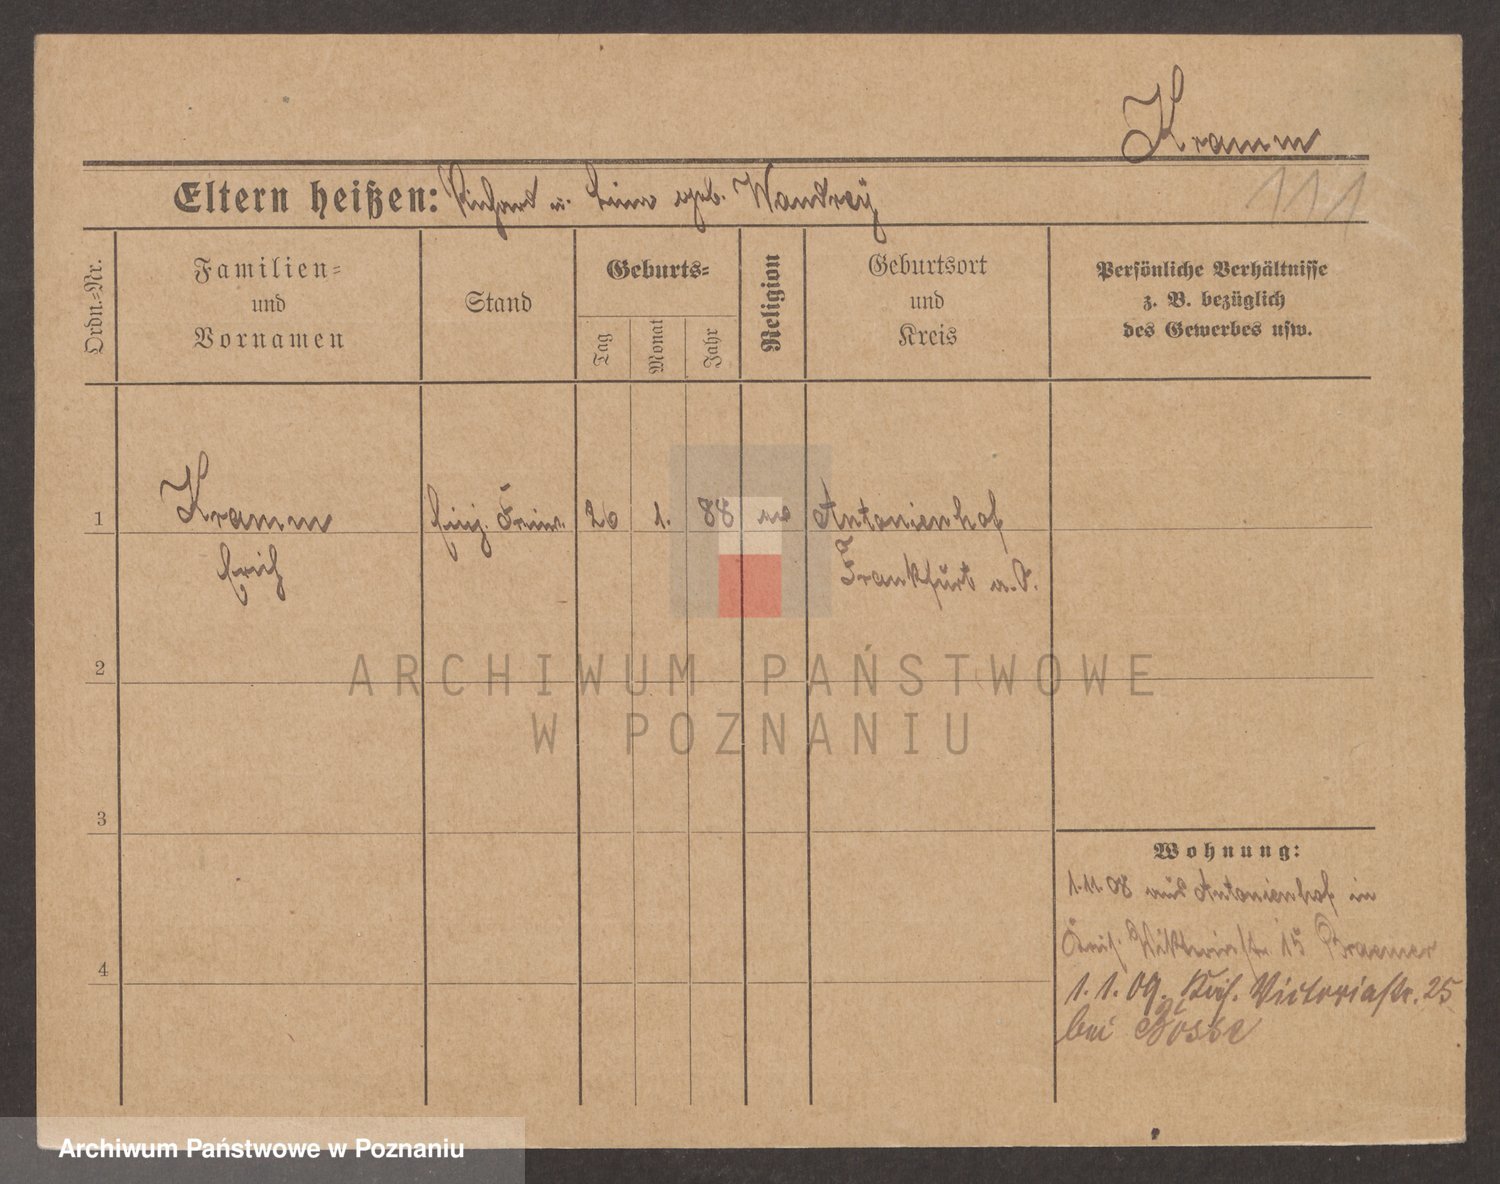 Kramm
Eltern heißen: Richard u. geb. Wandrey
111
Ordn.-Nr.
Familien-
und
Vornamen
Stand
Geburts-
Tag
Monat
Jahr
Religion
Geburtsort
und
Kreis
Persönliche Verhältnisse
z. B. bezüglich
des Gewerbes usw.
1 Kramm Einj. Freiw. 20 1. 88 ev Antonienhof
Erich Frankfurt a.O.
2
3
4
Wohnung:
1.11.08 aus Antonienhof in
15 Braemer
1.1.09. Victoriastr. 25
bei
ARCHIWUM PAŃSTWOWE
W POZNANIU
Archiwum Państwowe w Poznaniu